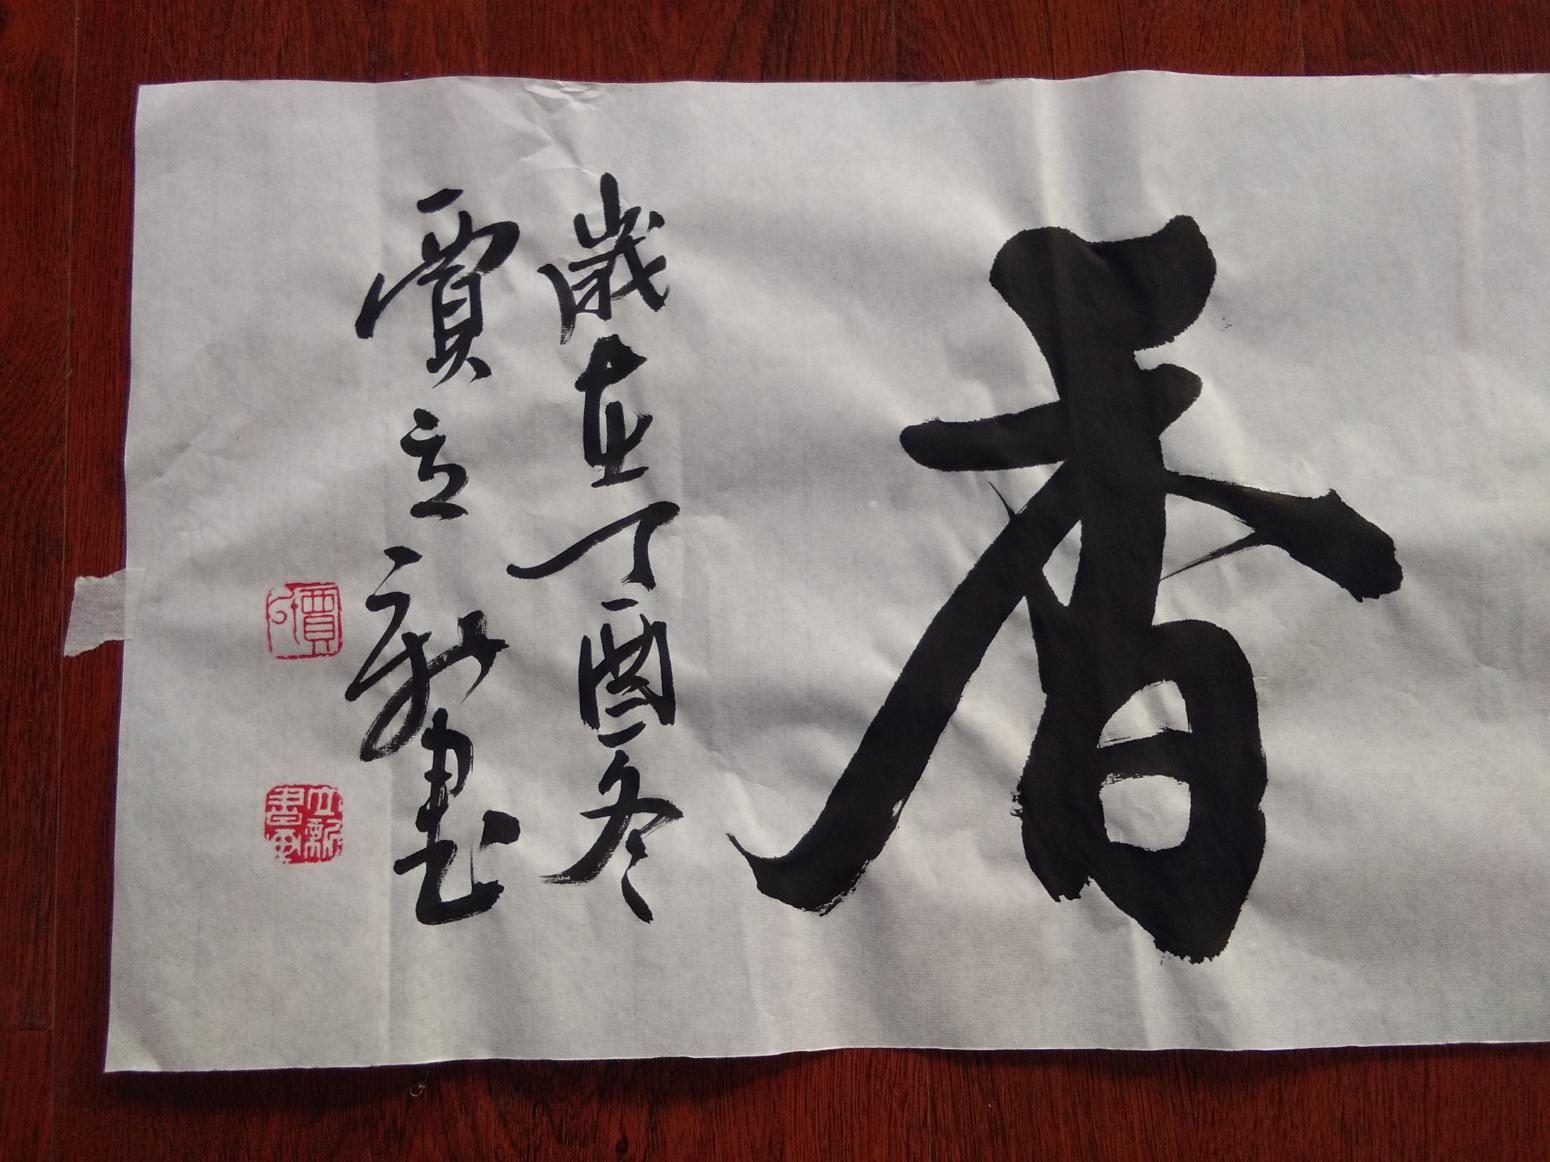 香
歲在丁酉冬
賈立新書
賈
立新書画